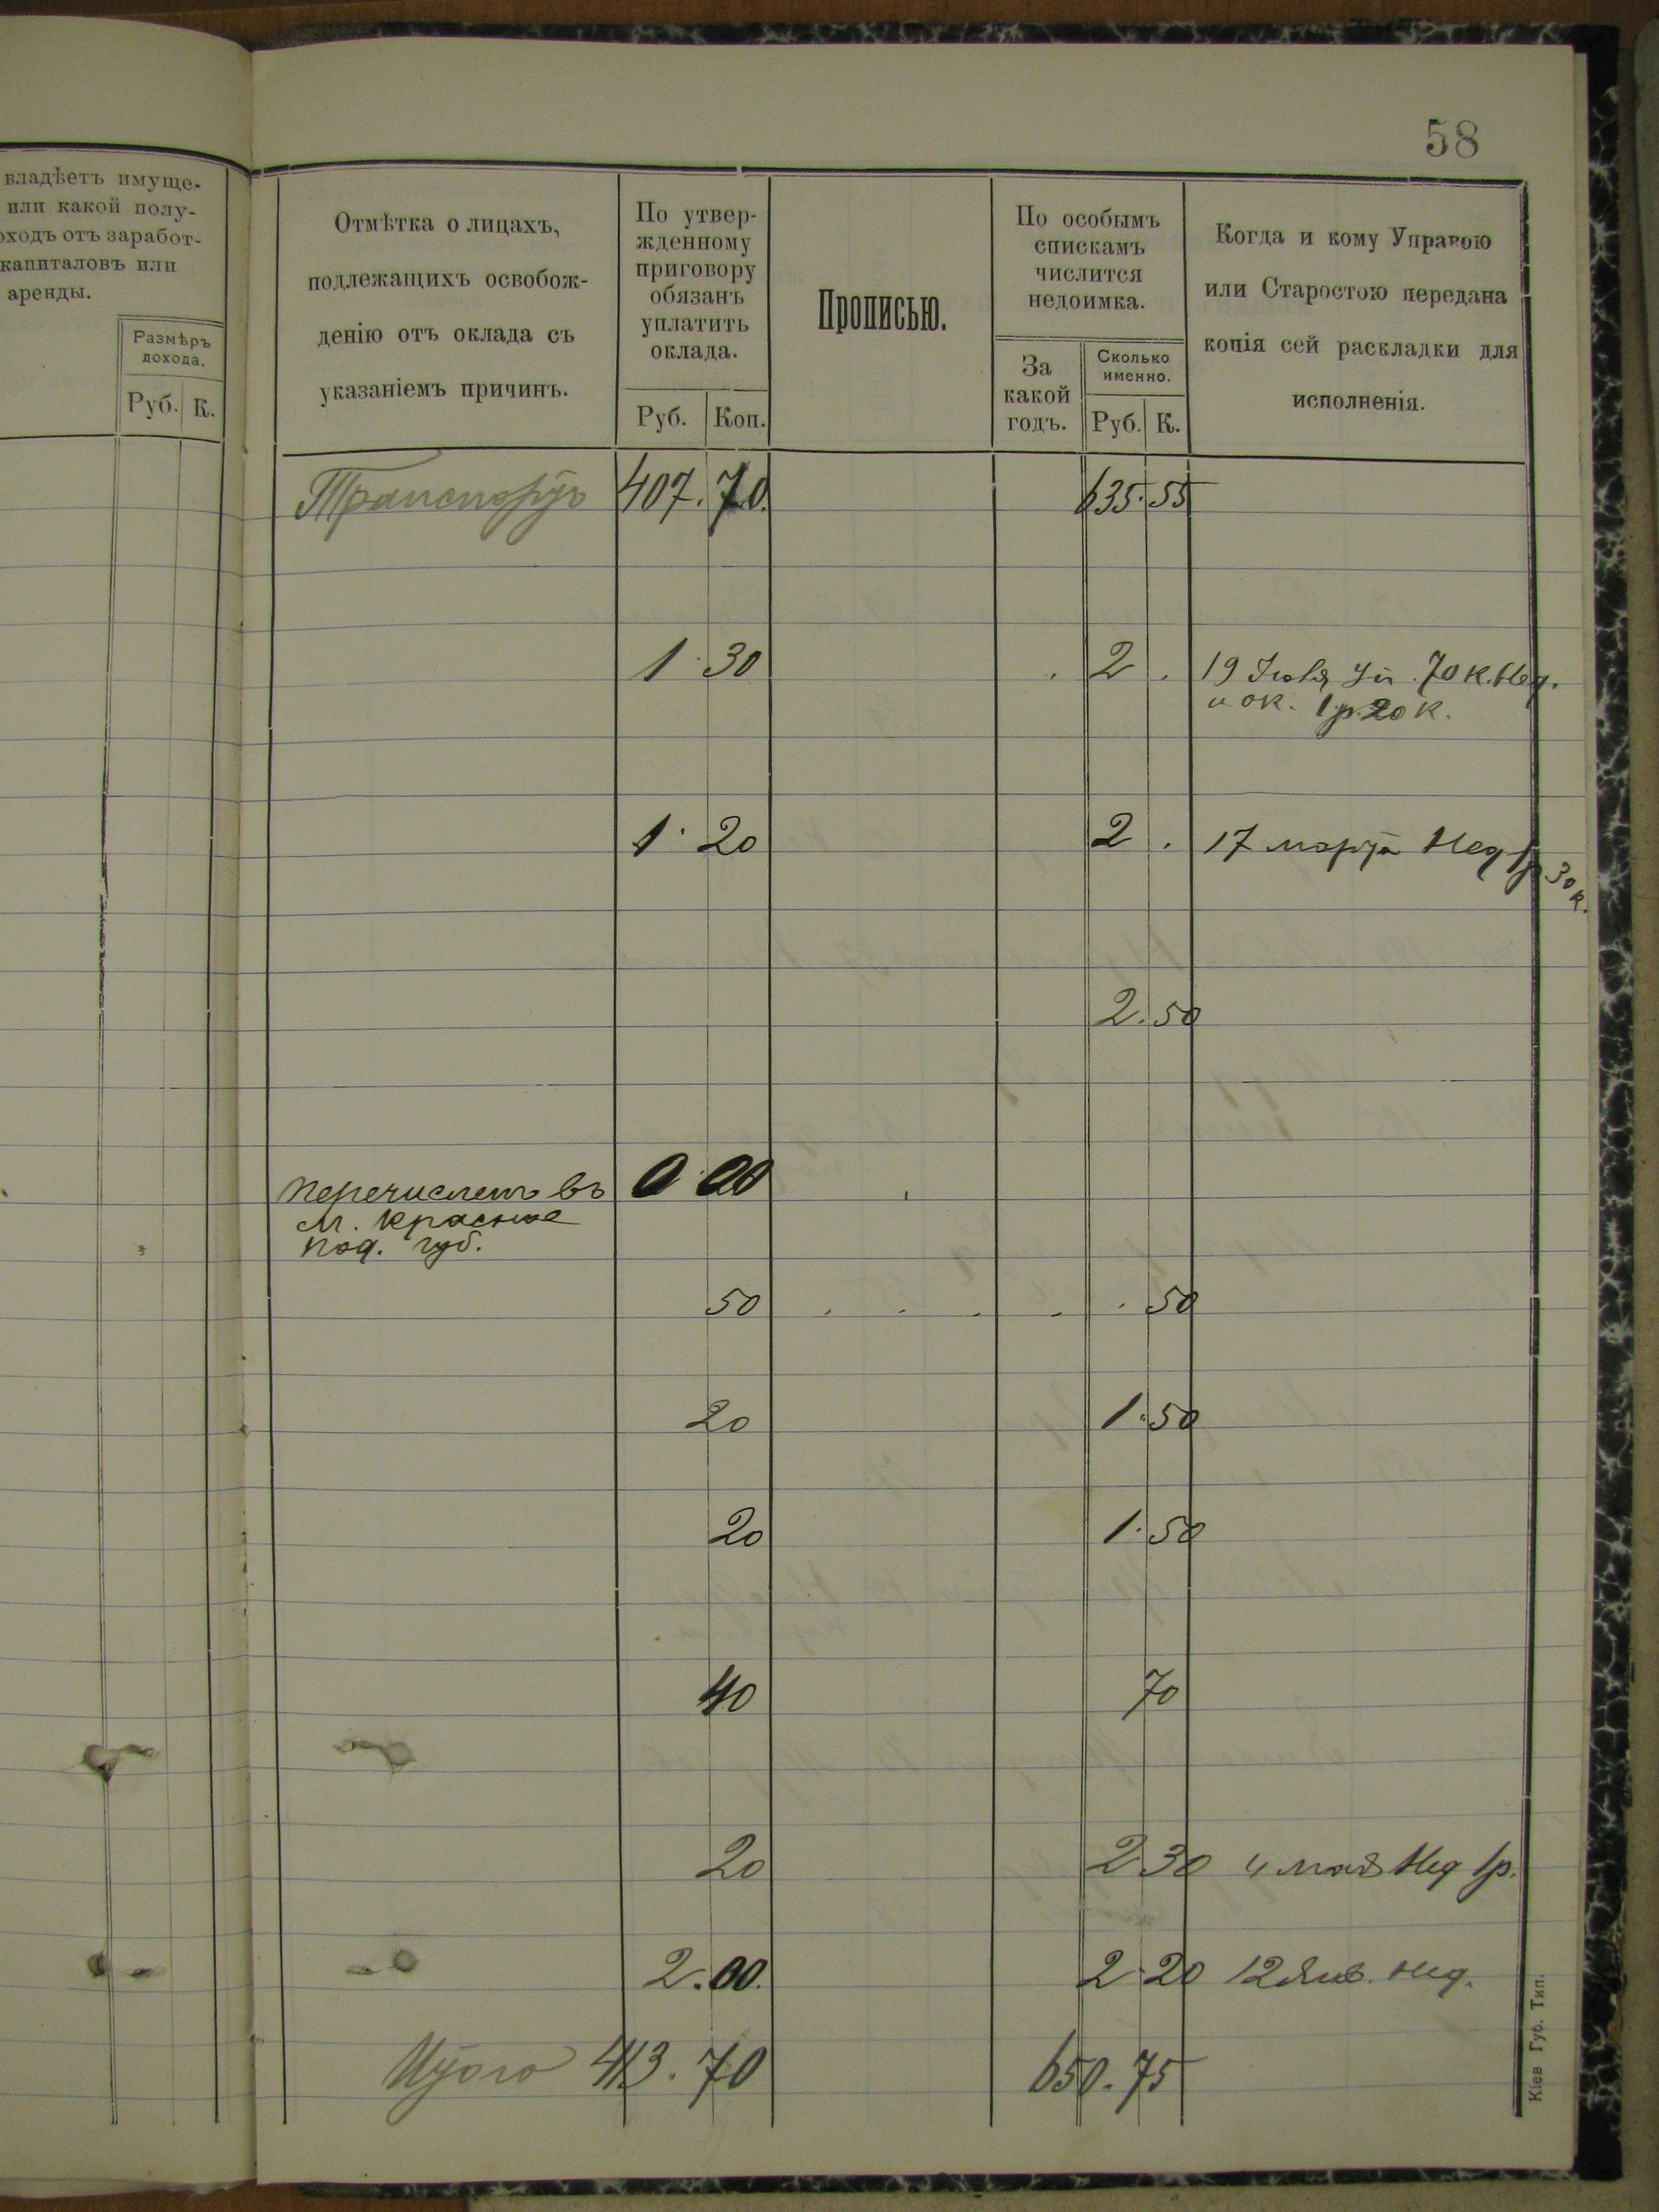 58
владѣетъ имуще-
или какой полу-
оходъ отъ заработ-
капиталовъ или
аренды.
Размѣръ
дохода.
Руб. К.
Отмѣтка о лицахъ,
подлежащихъ освобож-
денію отъ оклада съ
указаніемъ причинъ.
По утвер-
жденному
приговору
обязанъ
уплатить
оклада.
Руб. Коп.
Прописью.
По особымъ
спискамъ
числится
недоимка.
За
какой
годъ.
Сколько
именно.
Руб. К.
Когда и кому Управою
или Старостою передана
копія сей раскладки для
исполненія.
Транспортъ 407. 70. 635. 55
1 30 2 19 Іюля Уп. 70 к. Нед.
и ок. 1 р. 20 к.
1 20 2 17 марта Нед 1р 30 к.
2. 50
перечисленъ въ 0 00
м. Красное
под. губ.
50 50
20 1. 50
20 1. 50
40 70
20 2 30 4 мая Нед 1р.
2. 00. 2 20 12 Янв. Нед.
Итого 413. 70 650. 75
Кіев Губ. Тип.